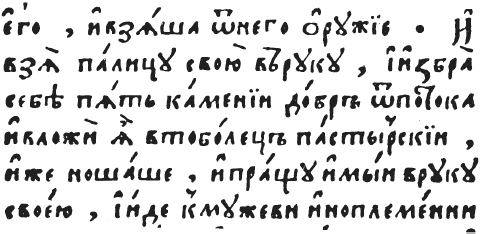 є҆го̀ , и҆взѧ́ша ѿнего ѻ҆рꙋ́жїе • И҆
взѧ̀ па́лицꙋ своюⷽ҇ въ́рꙋкꙋ , і҆и҆ꙁбра̀
себѣ̀ пѧ́ть ка́менїи до́брѣ ѿпото́ка
и҆вложѝ ѧ҆̀ втобо́лець па́стырⷭ҇скїи ,
и҆же ноша́ше , и҆пра́щꙋ и҆мы́и врꙋкꙋ
свое́ю , і҆и́де к̾мꙋ́жеви и҆ноплеме́нни